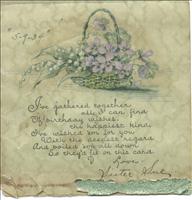 "5-9-36"
I've gathered together
all I can find
Of birthday wishes
the happiest kind.
I've wished 'em for you
With the deepest regard
And boiled 'em all down
So they'd fit on this card.
Love,